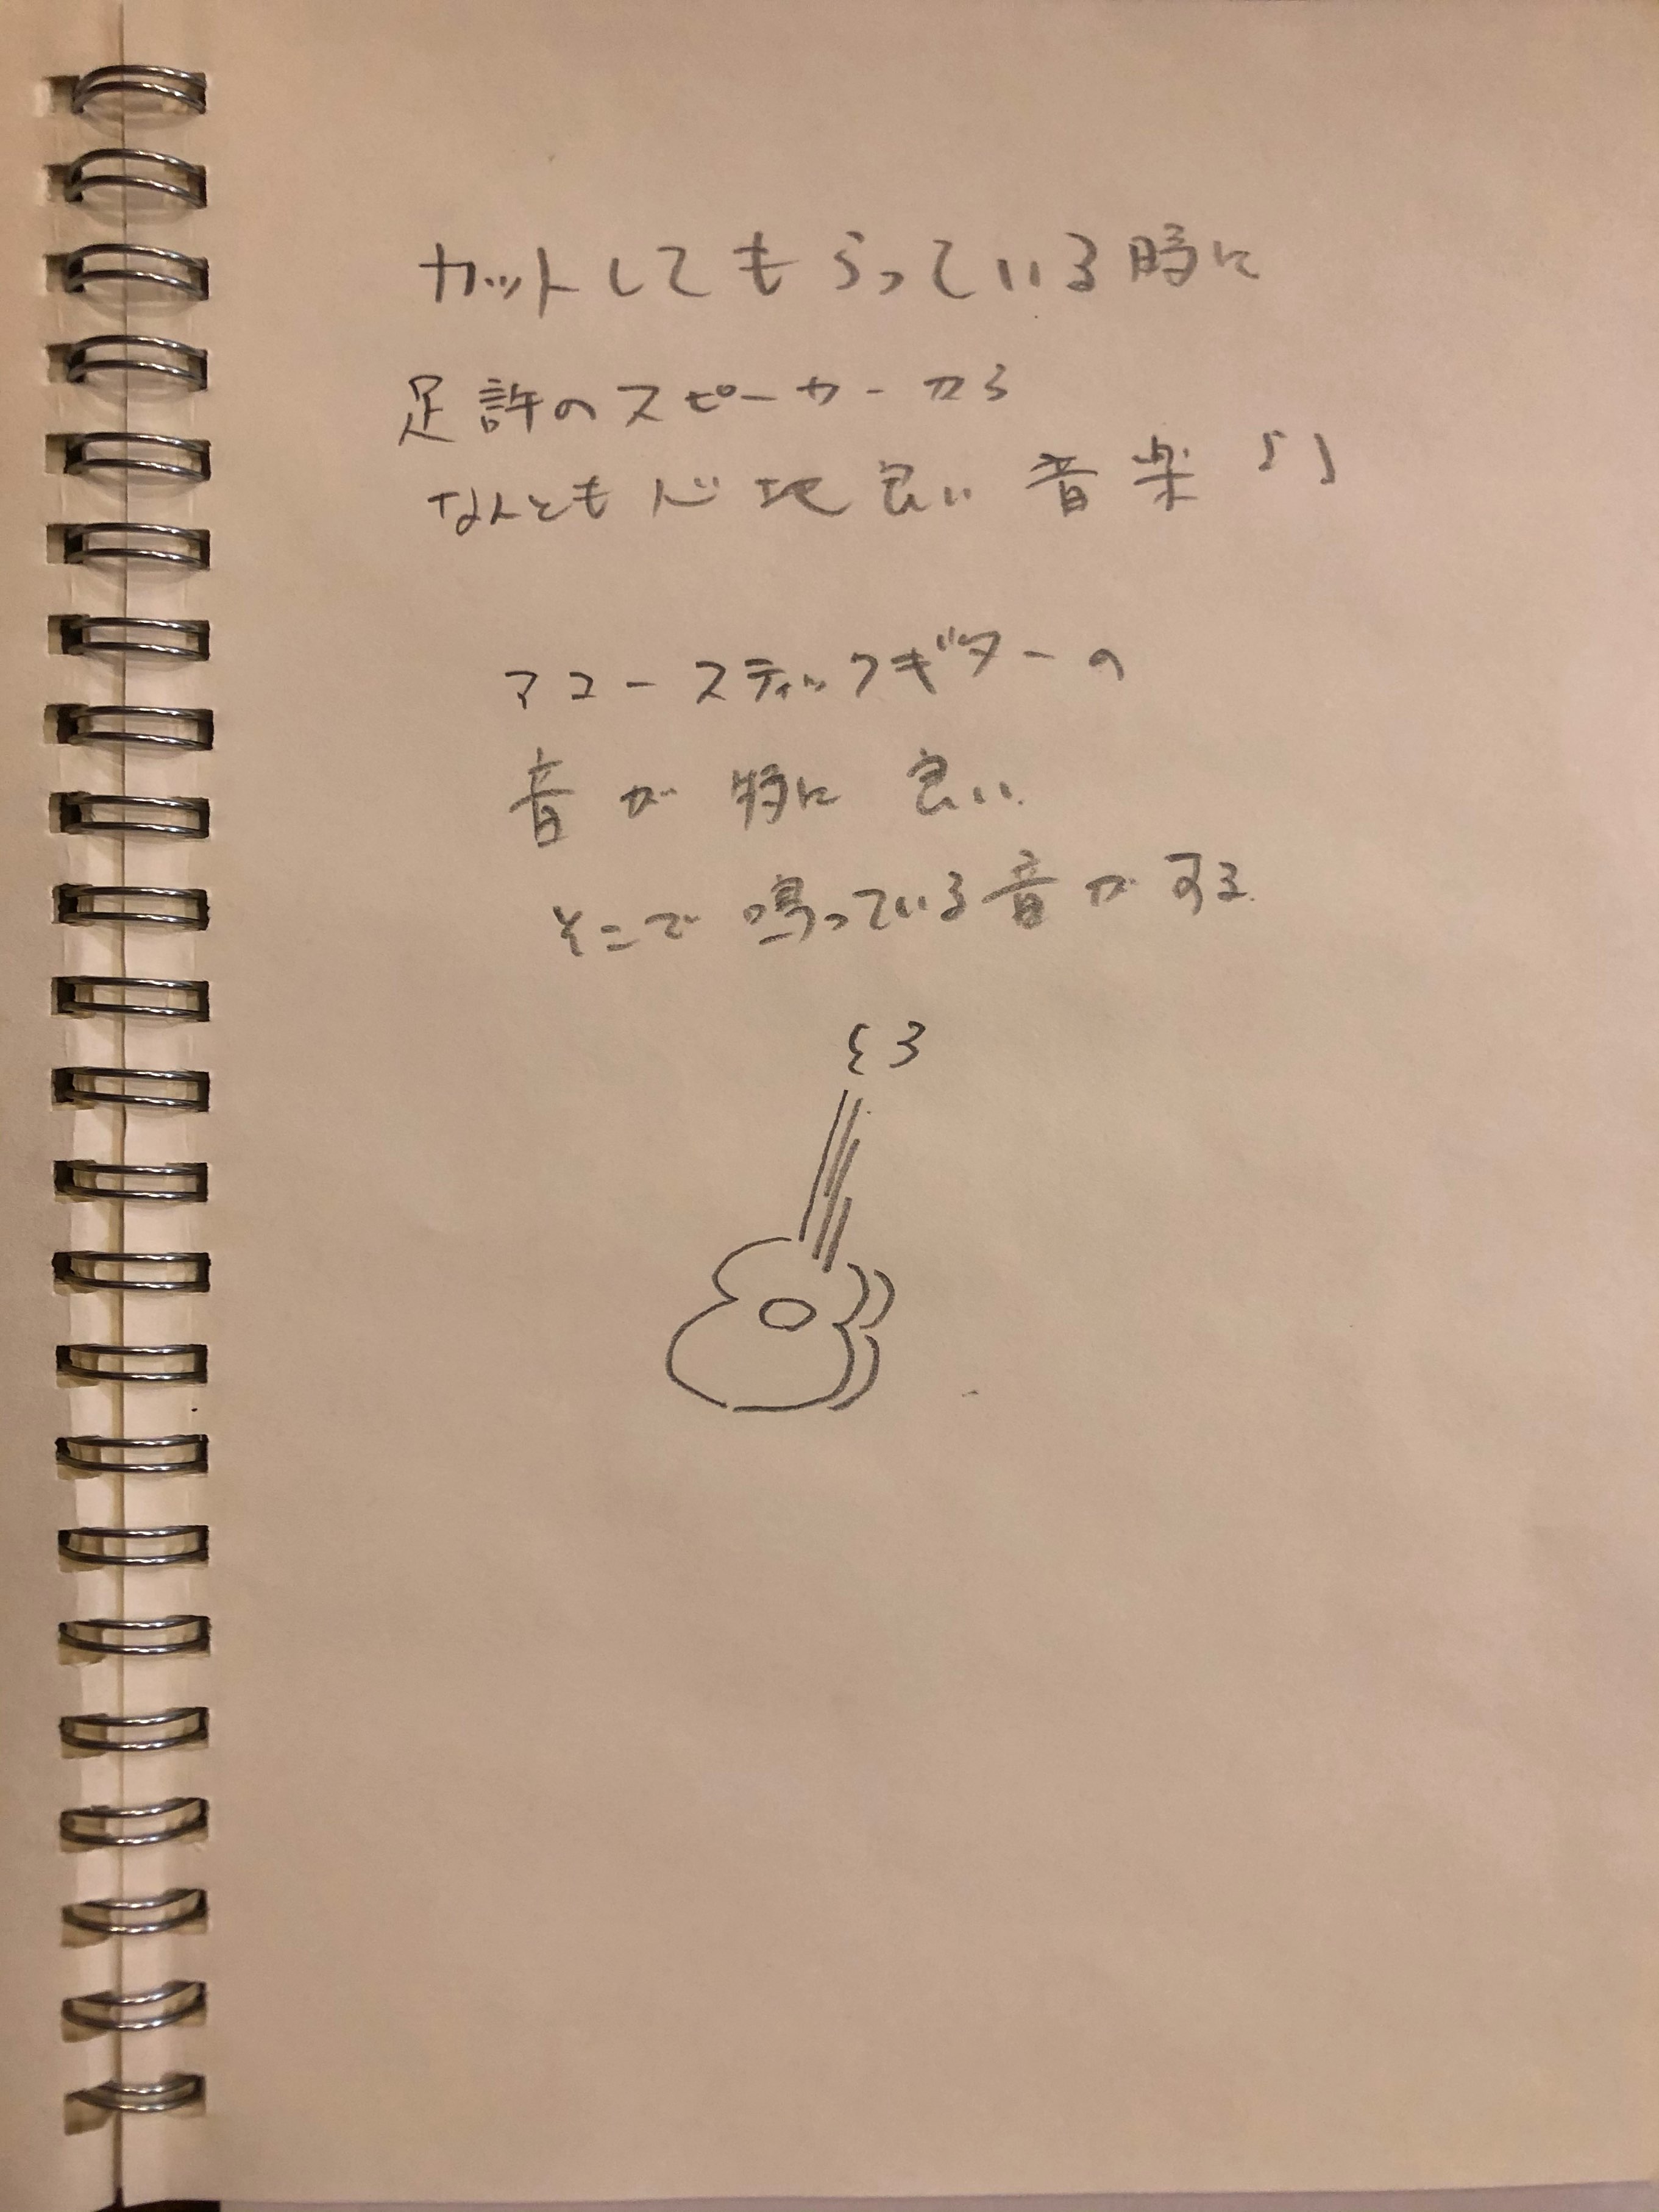 カットしてもらっている時に
足許のスピーカーから
なんとも心地良い音楽♪♩
アコースティックギターの
音が特に良い
そこで鳴っている音がする